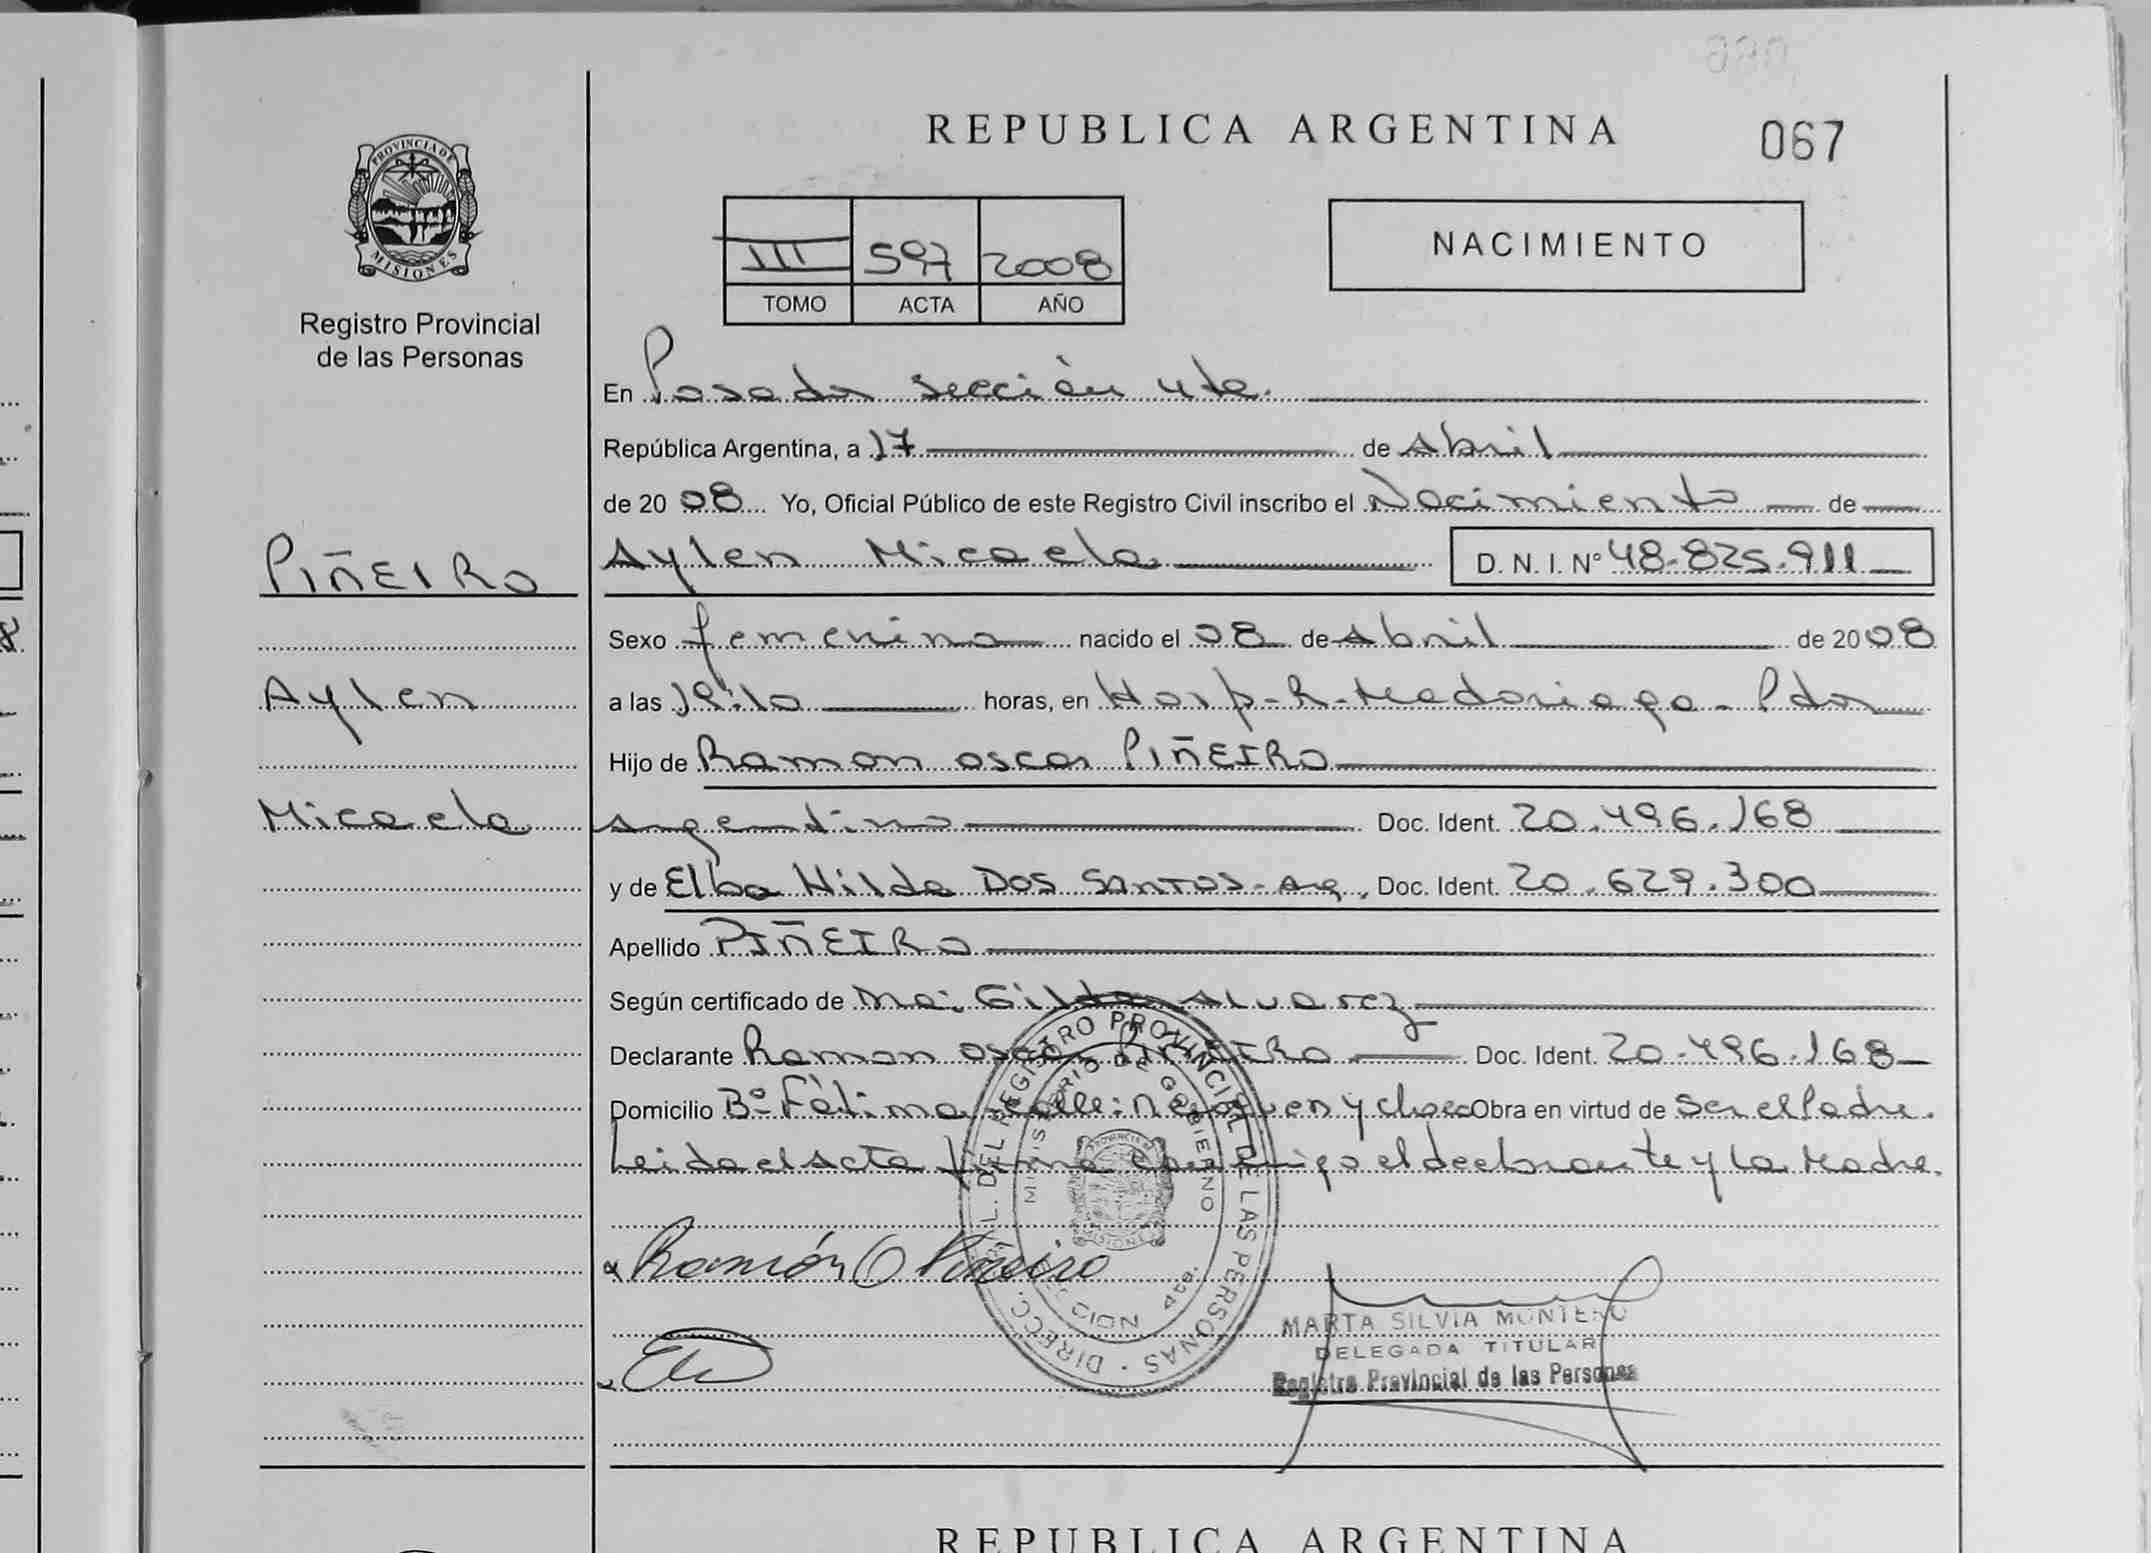 067
REPUBLICA ARGENTINA
PROVINCIA DE
MISIONES
Registro Provincial
de las Personas
III 597 2008
TOMO ACTA AÑO
NACIMIENTO
En Posadas sección 4ta.
República Argentina, a 17 de Abril
de 2008 Yo, Oficial Público de este Registro Civil inscribo el Nacimiento de
PIÑEIRO
Aylen Micaela D. N. I. N° 48.825.911
Sexo femenino nacido el 08 de Abril de 2008
Aylen
a las horas, en Hosp. R. Madariaga - Pdas
Hijo de Ramon oscar PIÑEIRO
Micaela
Argentino Doc. Ident. 20.496.168
y de Elba Hilda DOS SANTOS - Arg. Doc. Ident. 20.629.300
Apellido PIÑEIRO
Según certificado de Ma. Gilda Alvarez
Declarante Ramon Oscar PIÑEIRO Doc. Ident. 20.496.168
Domicilio B° Fátima calle: Neuquen y Obra en virtud de Ser el Padre.
Leida el Acta firma conmigo el declarante y la Madre.
DIRECC. DEL REGISTRO PROVINCIAL DE LAS PERSONAS
MINISTERIO DE GOBIERNO
MISIONES
Ramón O Piñeiro
MARTA SILVIA MONTERO
DELEGADA TITULAR
Registro Provincial de las Personas
REPUBLICA ARGENTINA